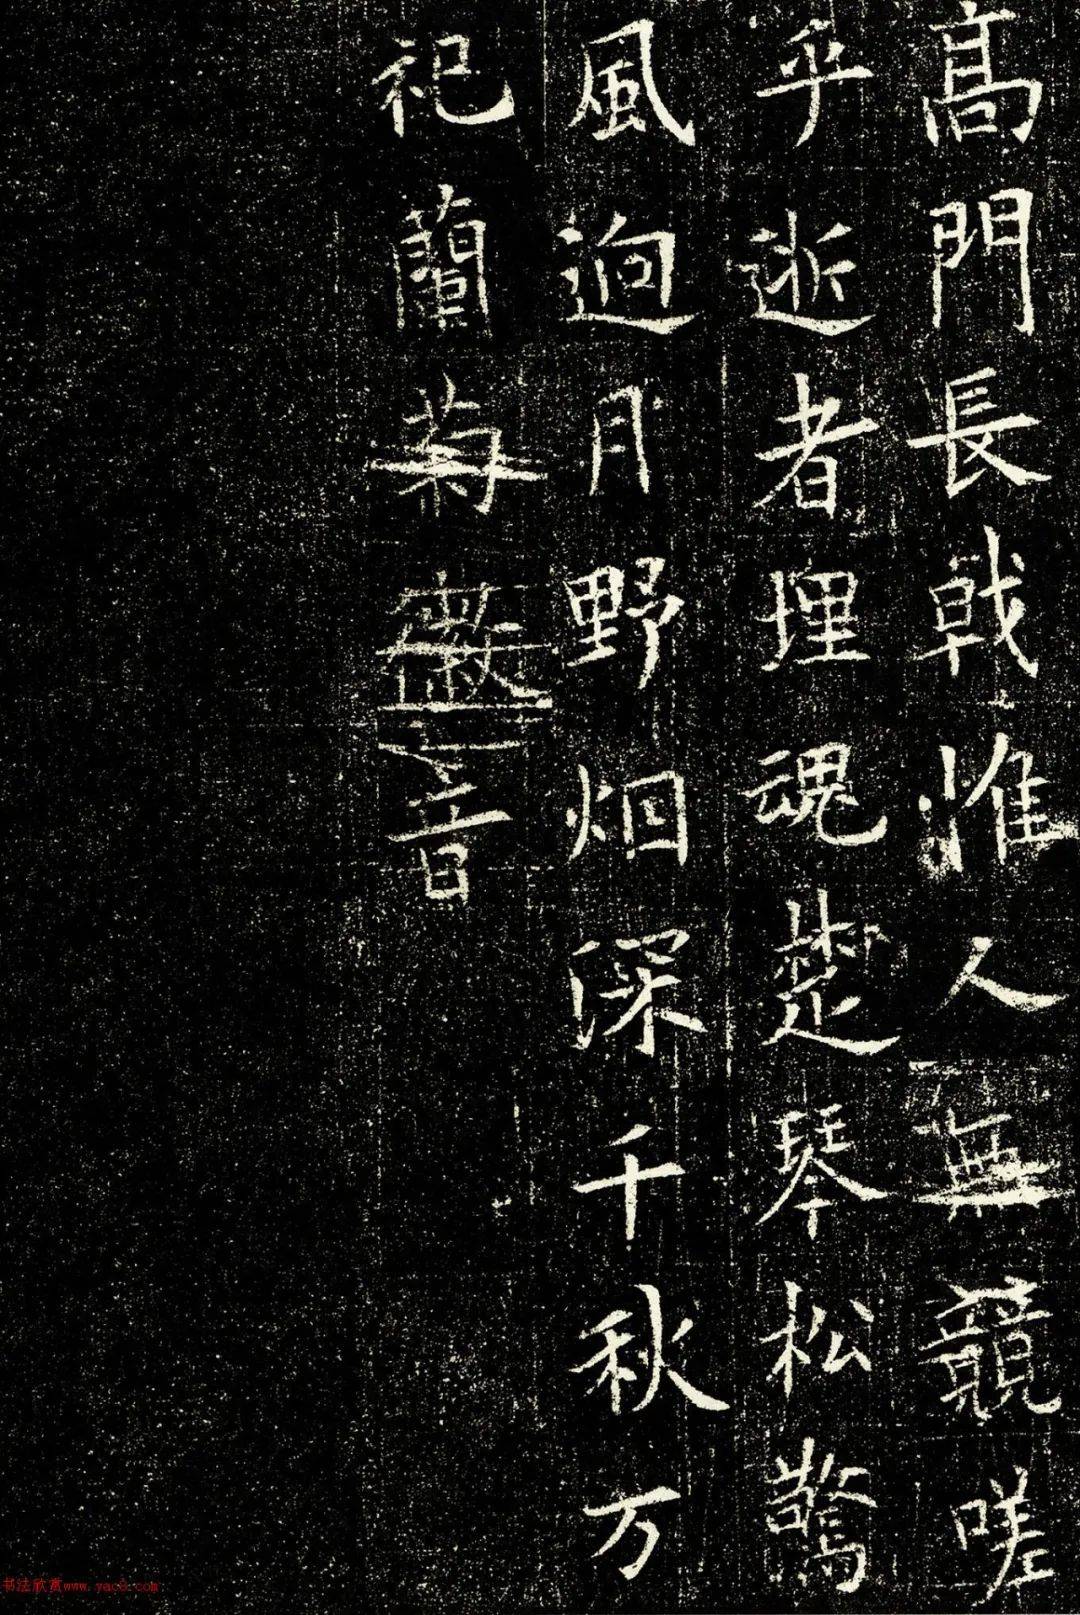 高門長戟惟人無競嗟
乎逝者埋魂楚琴松驚
風逈月野烟深千秋万
祀蘭菊徽音
书法欣赏www.yac8.com